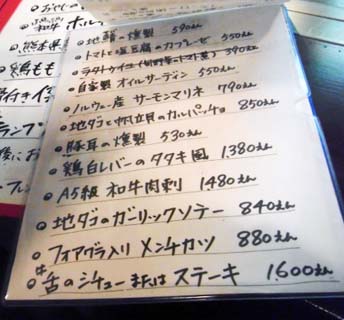 おやじの
和牛 ホル
熊本県
鶏もも
骨付き
フランプ
◎地鶏の燻製 590えん
◎トマトと豆腐のカプレーゼ 550えん
◎ラタトゥイユ 390えん
◎自家製 オイルサーディン 550えん
◎ノルウェー産 サーモンマリネ 790えん
◎地ダコと帆立貝のカルパッチョ 850えん
◎豚耳の燻製 530えん
◎鶏白レバーのタタキ風 1,380えん
◎A5級 和牛肉刺 1480えん
◎地ダコのガーリックソテー 840えん
◎フォアグラ入り メンチカツ 880えん
◎牛舌のシチューまたはステーキ 1,600えん